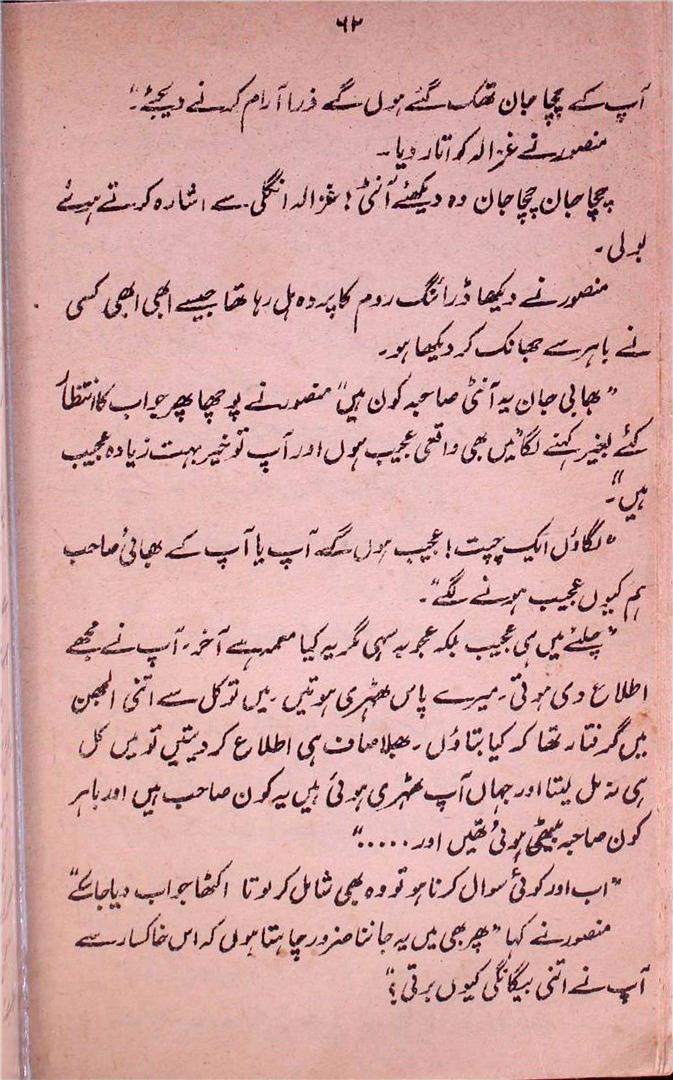 ۶۲
آپ کے چچا جان تھک گئے ہوں گے ذرا آرام کرنے دیجئے۔"
منصور نے غزالہ کو اتار دیا۔
چچا جان چچا جان وہ دیکھئے آنٹی! غزالہ انگلی سے اشارہ کرتے ہوئے
بولی۔
منصور نے دیکھا ڈرائنگ روم کا پردہ ہل رہا تھا جیسے ابھی ابھی کسی
نے باہر سے جھانک کر دیکھا ہو۔
"بھابی جان یہ آنٹی صاحبہ کون ہیں" منصور نے پوچھا پھر جواب کا انتظار
کئے بغیر کہنے لگا "میں بھی واقعی عجیب ہوں اور آپ تو خیر بہت زیادہ عجیب
ہیں"۔
"لگاؤں ایک چپت! عجیب ہوں گے آپ یا آپ کے بھائی صاحب
ہم کیوں عجیب ہونے لگے"۔
"چلئے میں ہی عجیب بلکہ عجوبہ سہی مگر یہ کیا معمہ ہے آخر۔ آپ نے مجھے
اطلاع دی ہوتی۔ میرے پاس ٹھہری ہوتیں۔ میں تو کل سے اتنی الجھن
میں گرفتار تھا کہ کیا بتاؤں۔ بھلا صاف ہی اطلاع کر دیتیں تو میں کل
ہی نہ مل لیتا اور جہاں آپ ٹھہری ہوئی ہیں یہ کون صاحب ہیں اور باہر
کون صاحبہ بیٹھی ہوئی تھیں اور ....."
"اب اور کوئی سوال کرنا ہو تو وہ بھی شامل کر لو تا اکٹھا جواب دیا جا سکے"
منصور نے کہا "پھر بھی میں یہ جاننا ضرور چاہتا ہوں کہ اس خاکسار سے
آپ نے اتنی بیگانگی کیوں برتی؟"